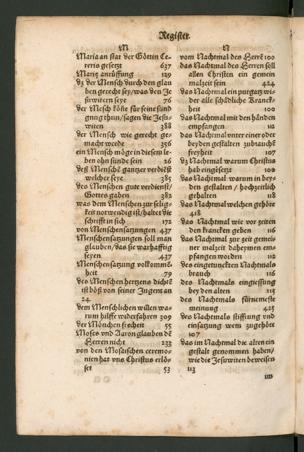 Register.
M
Maria an stat der Göttin Ce-
reris gesetzt 637
Mariæ anrüffung 129
Dz der Mensch durch den glau
ben gerecht sey/was den Je
sewitern seye 76
der Mesch köñe für seine sünd
gnug thun/sagen die Jesu-
witen 388
der Mensch wie gerecht ge-
macht werde 356
ein Mensch möge in diesem le-
ben ohn sünde sein 26
deß Menschē gantzer verdiest
welcher seye 385
des Menschen gute verdienst/
Gottes gaben 382
was dem Menschen zur selig-
keit notwendig ist/haltet die
schrifft in sich 172
von Menschensatzungen 437
Menschensatzungen soll man
glauben/das sie warhafftig
seyen 437
Menschensatzung vollkomē-
heit 79
des Menschen hertzens dicht
ist böß von seiner Jugent an
24.
dem Menschlichen willen wa-
rum hilffe widerfahren 309
der Mönchen freiheit 55
Moses vnd Aaron glaubendē
Herren nicht 233
von den Mosaischen ceremo-
nien hat vns Christus erlö-
set 53
N
vom Nachtmal des Herrē 100
das Nachtmal des Herren soll
allen Christen ein gemein
malzeit sein 424
das Nachtmal ein purgatz wi-
der alle schädliche Kranck-
heit 100
das Nachtmal mit den händen
empfangen 112
das Nachtmal vnter einer oder
beyden gestalten zubrauchē
freyheit 107
Dz Nachtmal warum Christus
hab eingesetzt 100
das Nachtmal warum in bey-
den gestalten/hochzeitlich
gehalten 118
das Nachtmal welchen gehöre
418
das Nachtmal wie vor zeiten
den krancken geben 116
das Nachtmal zur zeit gemei-
ner malzeit daheymen em-
pfangen worden 112
des eingetuncktē Nachtmals
brauch 116
des Nachtmals eingiessung
bey den alten 115
des Nachtmals fürnemeste
meinung 425
des Nachtmals stifftung vnd
einsatzung wem zugehöre
107
das im Nachtmal die alten ein
gestalt genommen haben/
wie die Jesewiter beweisen
113